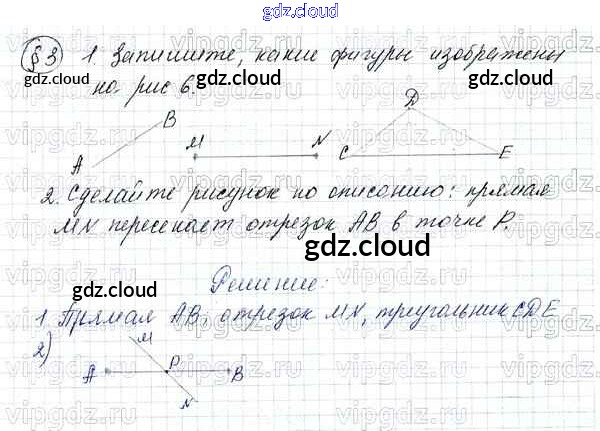 gdz.cloud
§3 1. Запишите, какие фигуры изображены
на рис 6.
gdz.cloud
gdz.cloud
A B M N C D E
2. Сделайте рисунок по описанию: прямая
MN пересекает отрезок AB в точке P.
gdz.cloud
Решение:
gdz.cloud
1 Прямая AB, отрезок MN, треугольник CDE
2)
M
A P B
N
vipgdz.ru